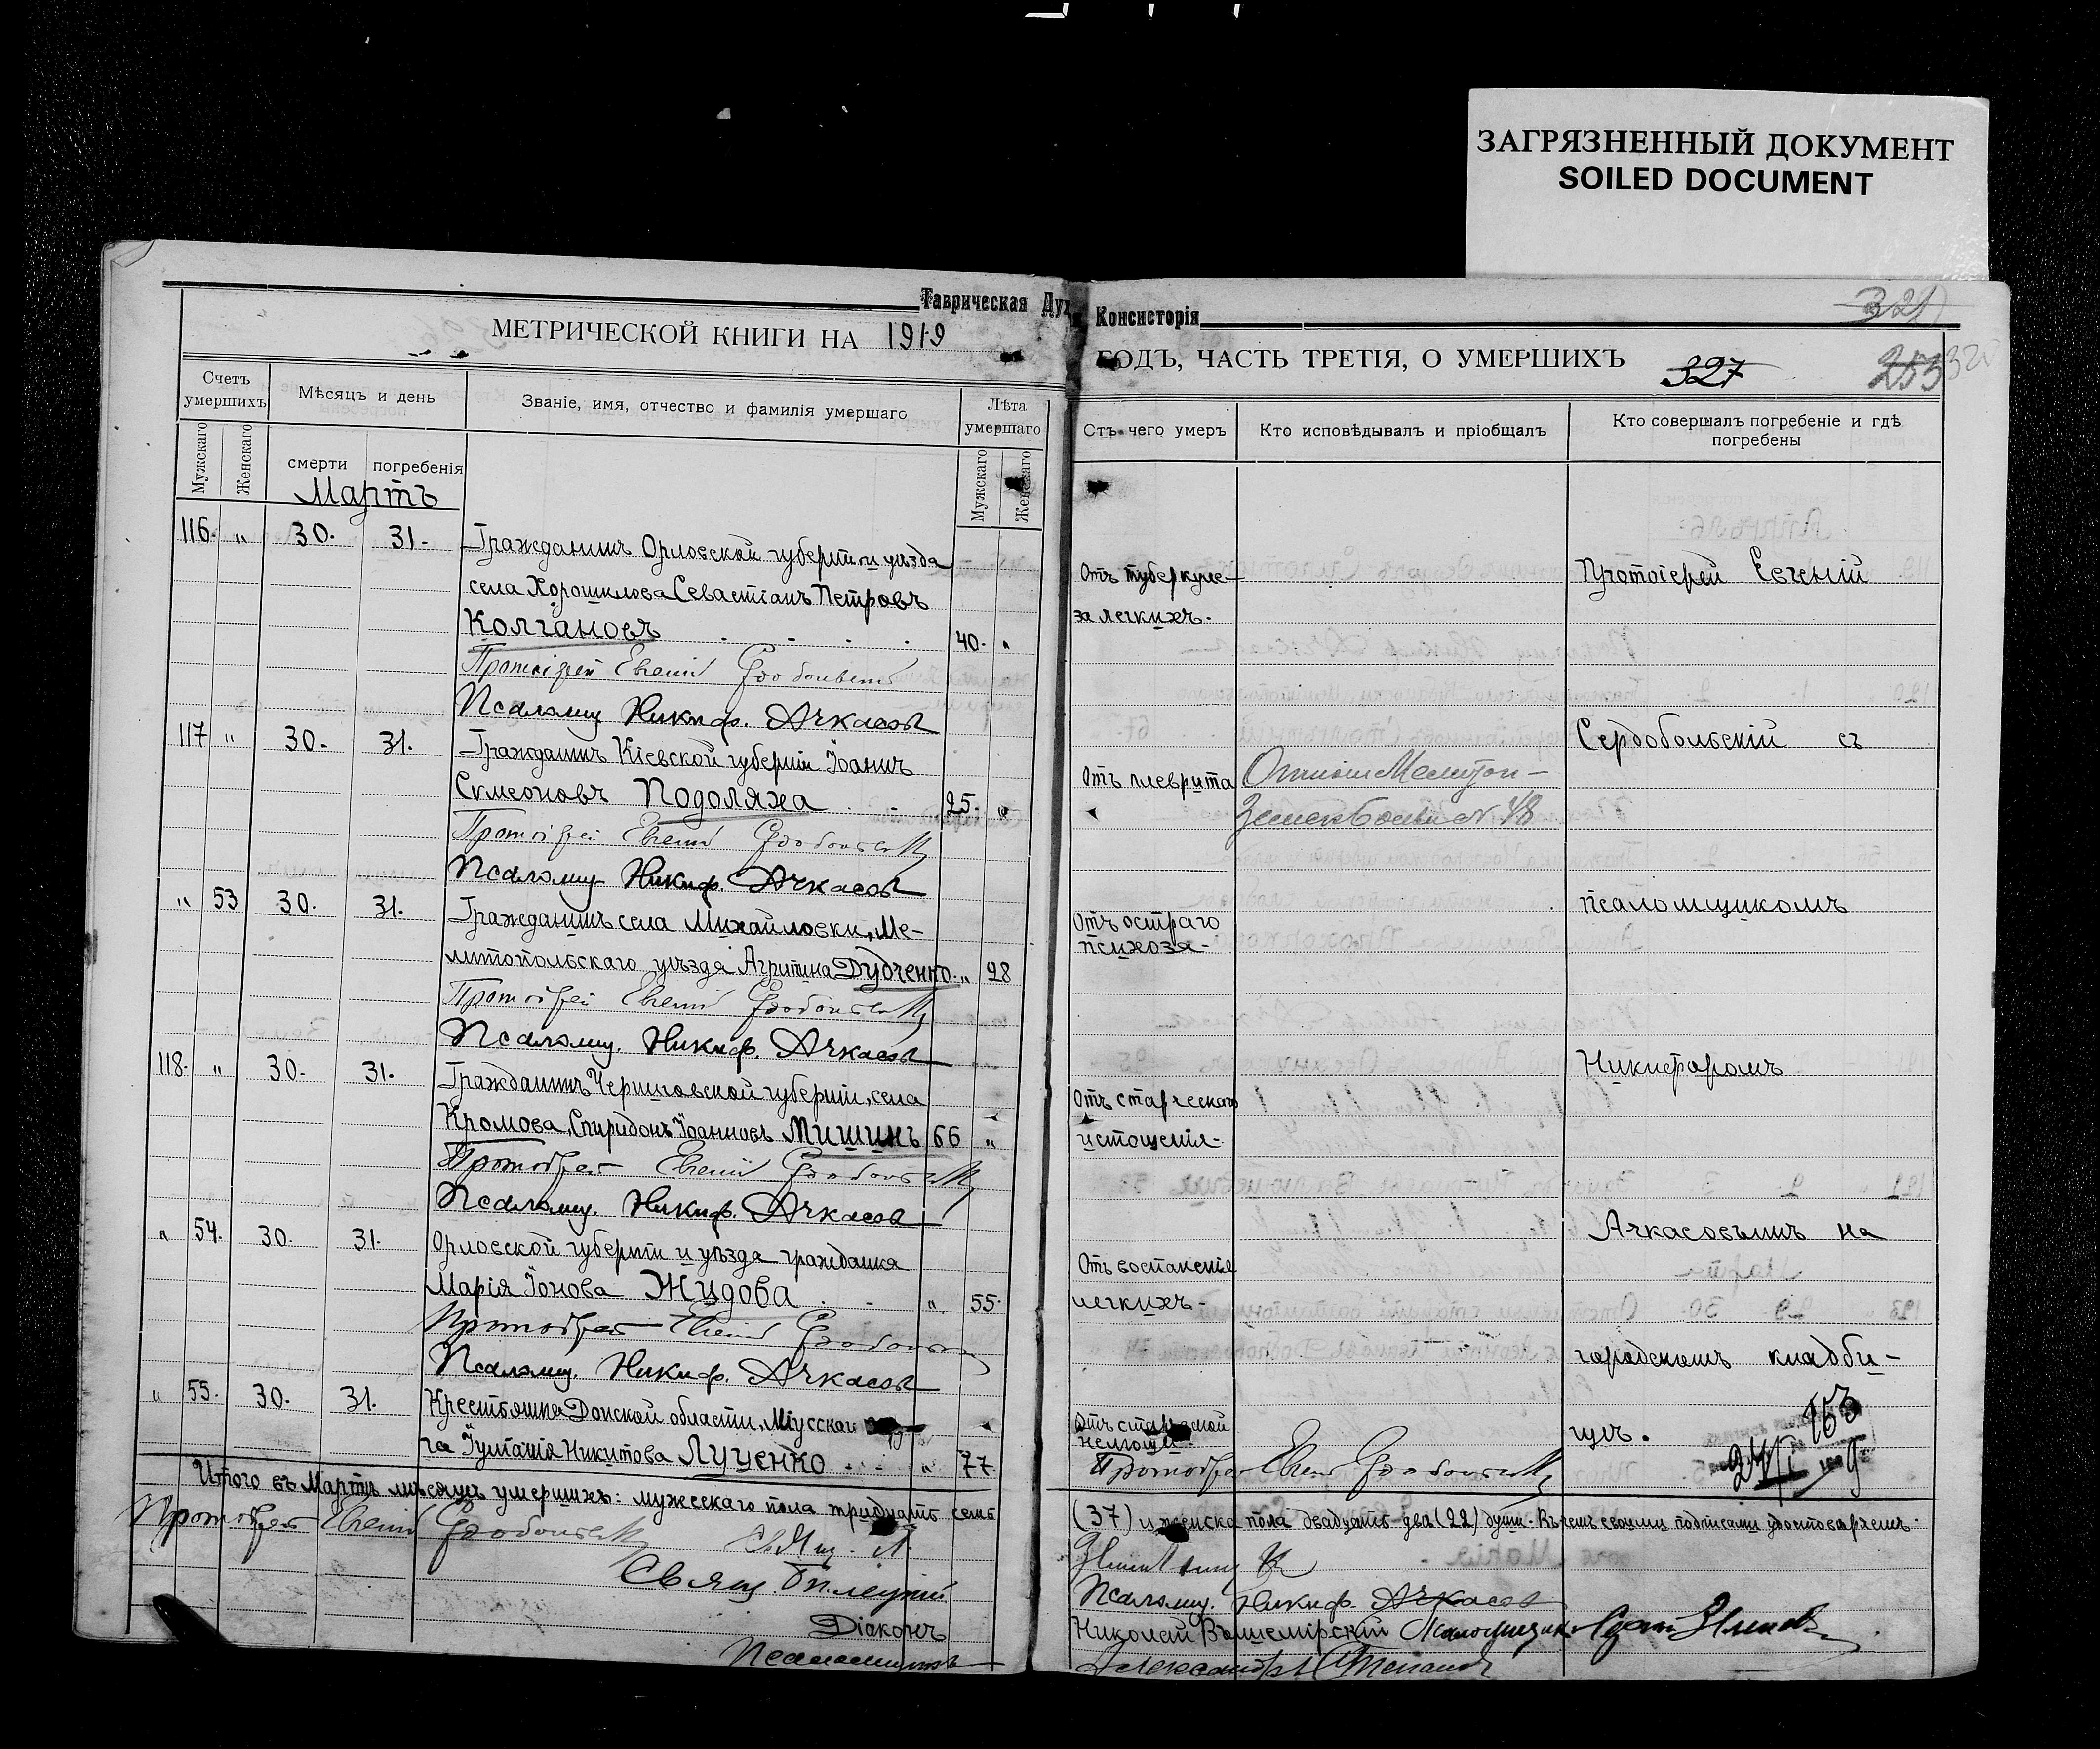 ЗАГРЯЗНЕННЫЙ ДОКУМЕНТ
SOILED DOCUMENT
Таврическая Дух. Консисторія
МЕТРИЧЕСКОЙ КНИГИ НА 1919
ГОДЪ, ЧАСТЬ ТРЕТІЯ, О УМЕРШИХЪ 327 253
Счетъ умершихъ
Мѣсяцъ и день
Званіе, имя, отчество и фамилія умершаго
Лѣта умершаго
Отъ чего умеръ
Кто исповѣдывалъ и пріобщалъ
Кто совершалъ погребеніе и гдѣ погребены
Мужскаго
Женскаго
смерти
погребенія
Мужскаго
Женскаго
Мартъ
116. " 30. 31. Гражданинъ Орловской губерніи и уѣзда
села Хорошилова Севастіанъ Петровъ
Колгановъ 40. "
Отъ туберкуле-
за легкихъ.
Протоіерей Евгеній
Протоіерей Евгеній Сердобольскій
Псаломщ Никиф. Ачкасовъ
117 " 30. 31. Гражданинъ Кіевской губерніи Іоаннъ
Сумеоновъ Подоляха 25. "
Отъ плеврита
Сердобольскій съ
Протоіерей Евгеній Сердобольскій
Псаломщ Никиф. Ачкасовъ
" 53 30. 31. Гражданинъ села Михайловки, Ме-
литопольскаго уѣзда Агрипина Дудченко " 28
Отъ остраго
психоза.
псаломщикомъ
Протоіерей Евгеній Сердобольскій
Псаломщ. Никиф. Ачкасовъ
118. " 30. 31. Гражданинъ Черниговской губерніи, села
Кромова, Спиридонъ Іоанновъ Мишинъ 66 "
Отъ старческаго
истощенія.
Никифоромъ
Протоіерей Евгеній Сердобольскій
Псаломщ. Никиф. Ачкасовъ
" 54. 30. 31. Орловской губерніи и уѣзда гражданка
Марія Іонова Жидова " 55.
Отъ воспаленія
легкихъ.
Ачкасовымъ на
Протоіерей Евгеній Сердобольскій
Псаломщ. Никиф. Ачкасовъ
городскомъ кладби-
" 55. 30. 31. Крестьянка Донской области, Міусскаго
га Іуліанія Никитова Луценко " 77.
немощи.
щѣ.
Протоіерей Евгеній Сердобольскій
Итого въ Мартѣ мѣсяцѣ умершихъ: мужескаго пола тридцать семь
(37) и женска пола двадцать двѣ (22) души. Въ чемъ своими подписями удостовѣряемъ:
Протоіерей Евгеній Сердобольскій
Свящ
Діаконъ
Псаломщикъ
Псаломщ. Никиф. Ачкасовъ
Николай Псаломщикъ
Александръ Степановъ